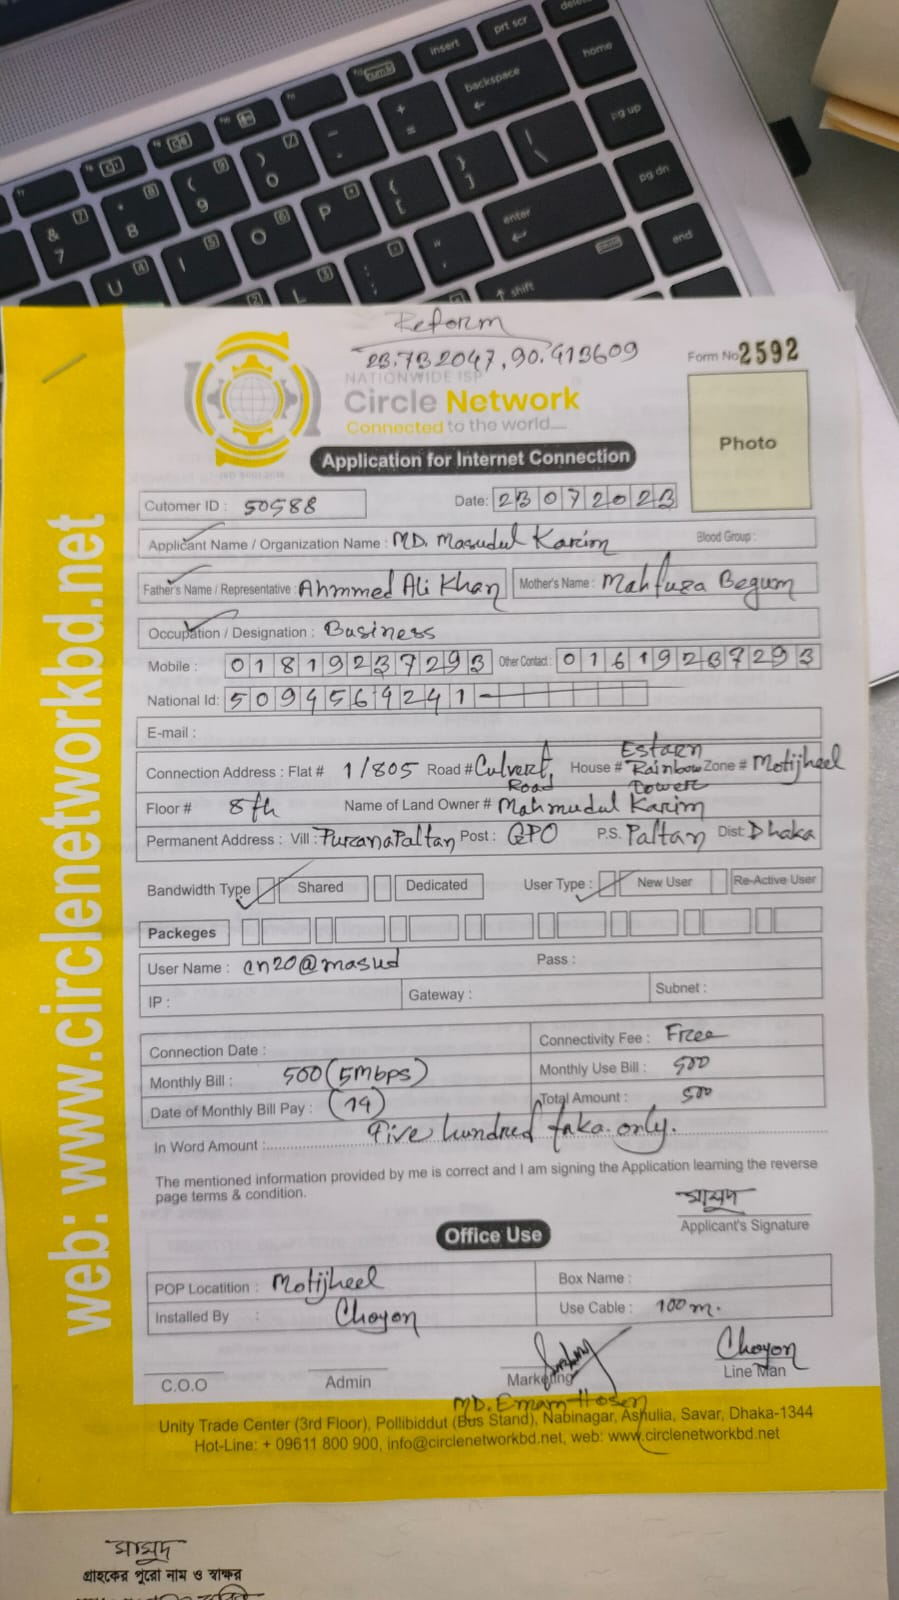 insert
prt scr
delete
home
backspace
pg up
pg dn
enter
end
shift
& 7
* 8
( 9
) 0
U I O P
L
Reform
23.732047, 90.413609
Form No 2592
NATIONWIDE ISP
Circle Network
Connected to the world....
Photo
Application for Internet Connection
Cutomer ID : 50588 Date: 23072023
Applicant Name / Organization Name : MD. Masudul Karim Blood Group :
Father's Name / Representative : Ahmmed Ali Khan Mother's Name : Mahfuza Begum
Occupation / Designation : Business
Mobile : 01819237293 Other Contact : 01619237293
National Id: 5094569241
E-mail :
Connection Address : Flat # 1/805 Road # Culvert Road House # Estarn Rainbow Tower Zone # Motijheel
Floor # 8th Name of Land Owner # Mahmudul Karim
Permanent Address : Vill : PuranaPaltan Post : GPO P.S. Paltan Dist: Dhaka
Bandwidth Type Shared Dedicated User Type : New User Re-Active User
Packeges
User Name : cn20@masud Pass :
IP : Gateway : Subnet :
Connection Date : Connectivity Fee : Free
Monthly Bill : 500 (5Mbps) Monthly Use Bill : 500
Date of Monthly Bill Pay : (14) Total Amount : 500
In Word Amount : Five hundred taka only.
The mentioned information provided by me is correct and I am signing the Application learning the reverse
page terms & condition.
মাসুদ
Applicant's Signature
Office Use
POP Locatition : Motijheel Box Name :
Installed By : Choyon Use Cable : 100m.
Choyon
C.O.O Admin Marketing Line Man
MD. Emam Hosen
Unity Trade Center (3rd Floor), Pollibiddut (Bus Stand), Nabinagar, Ashulia, Savar, Dhaka-1344
Hot-Line: + 09611 800 900, info@circlenetworkbd.net, web: www.circlenetworkbd.net
web: www.circlenetworkbd.net
মাসুদ
গ্রাহকের পুরো নাম ও স্বাক্ষর